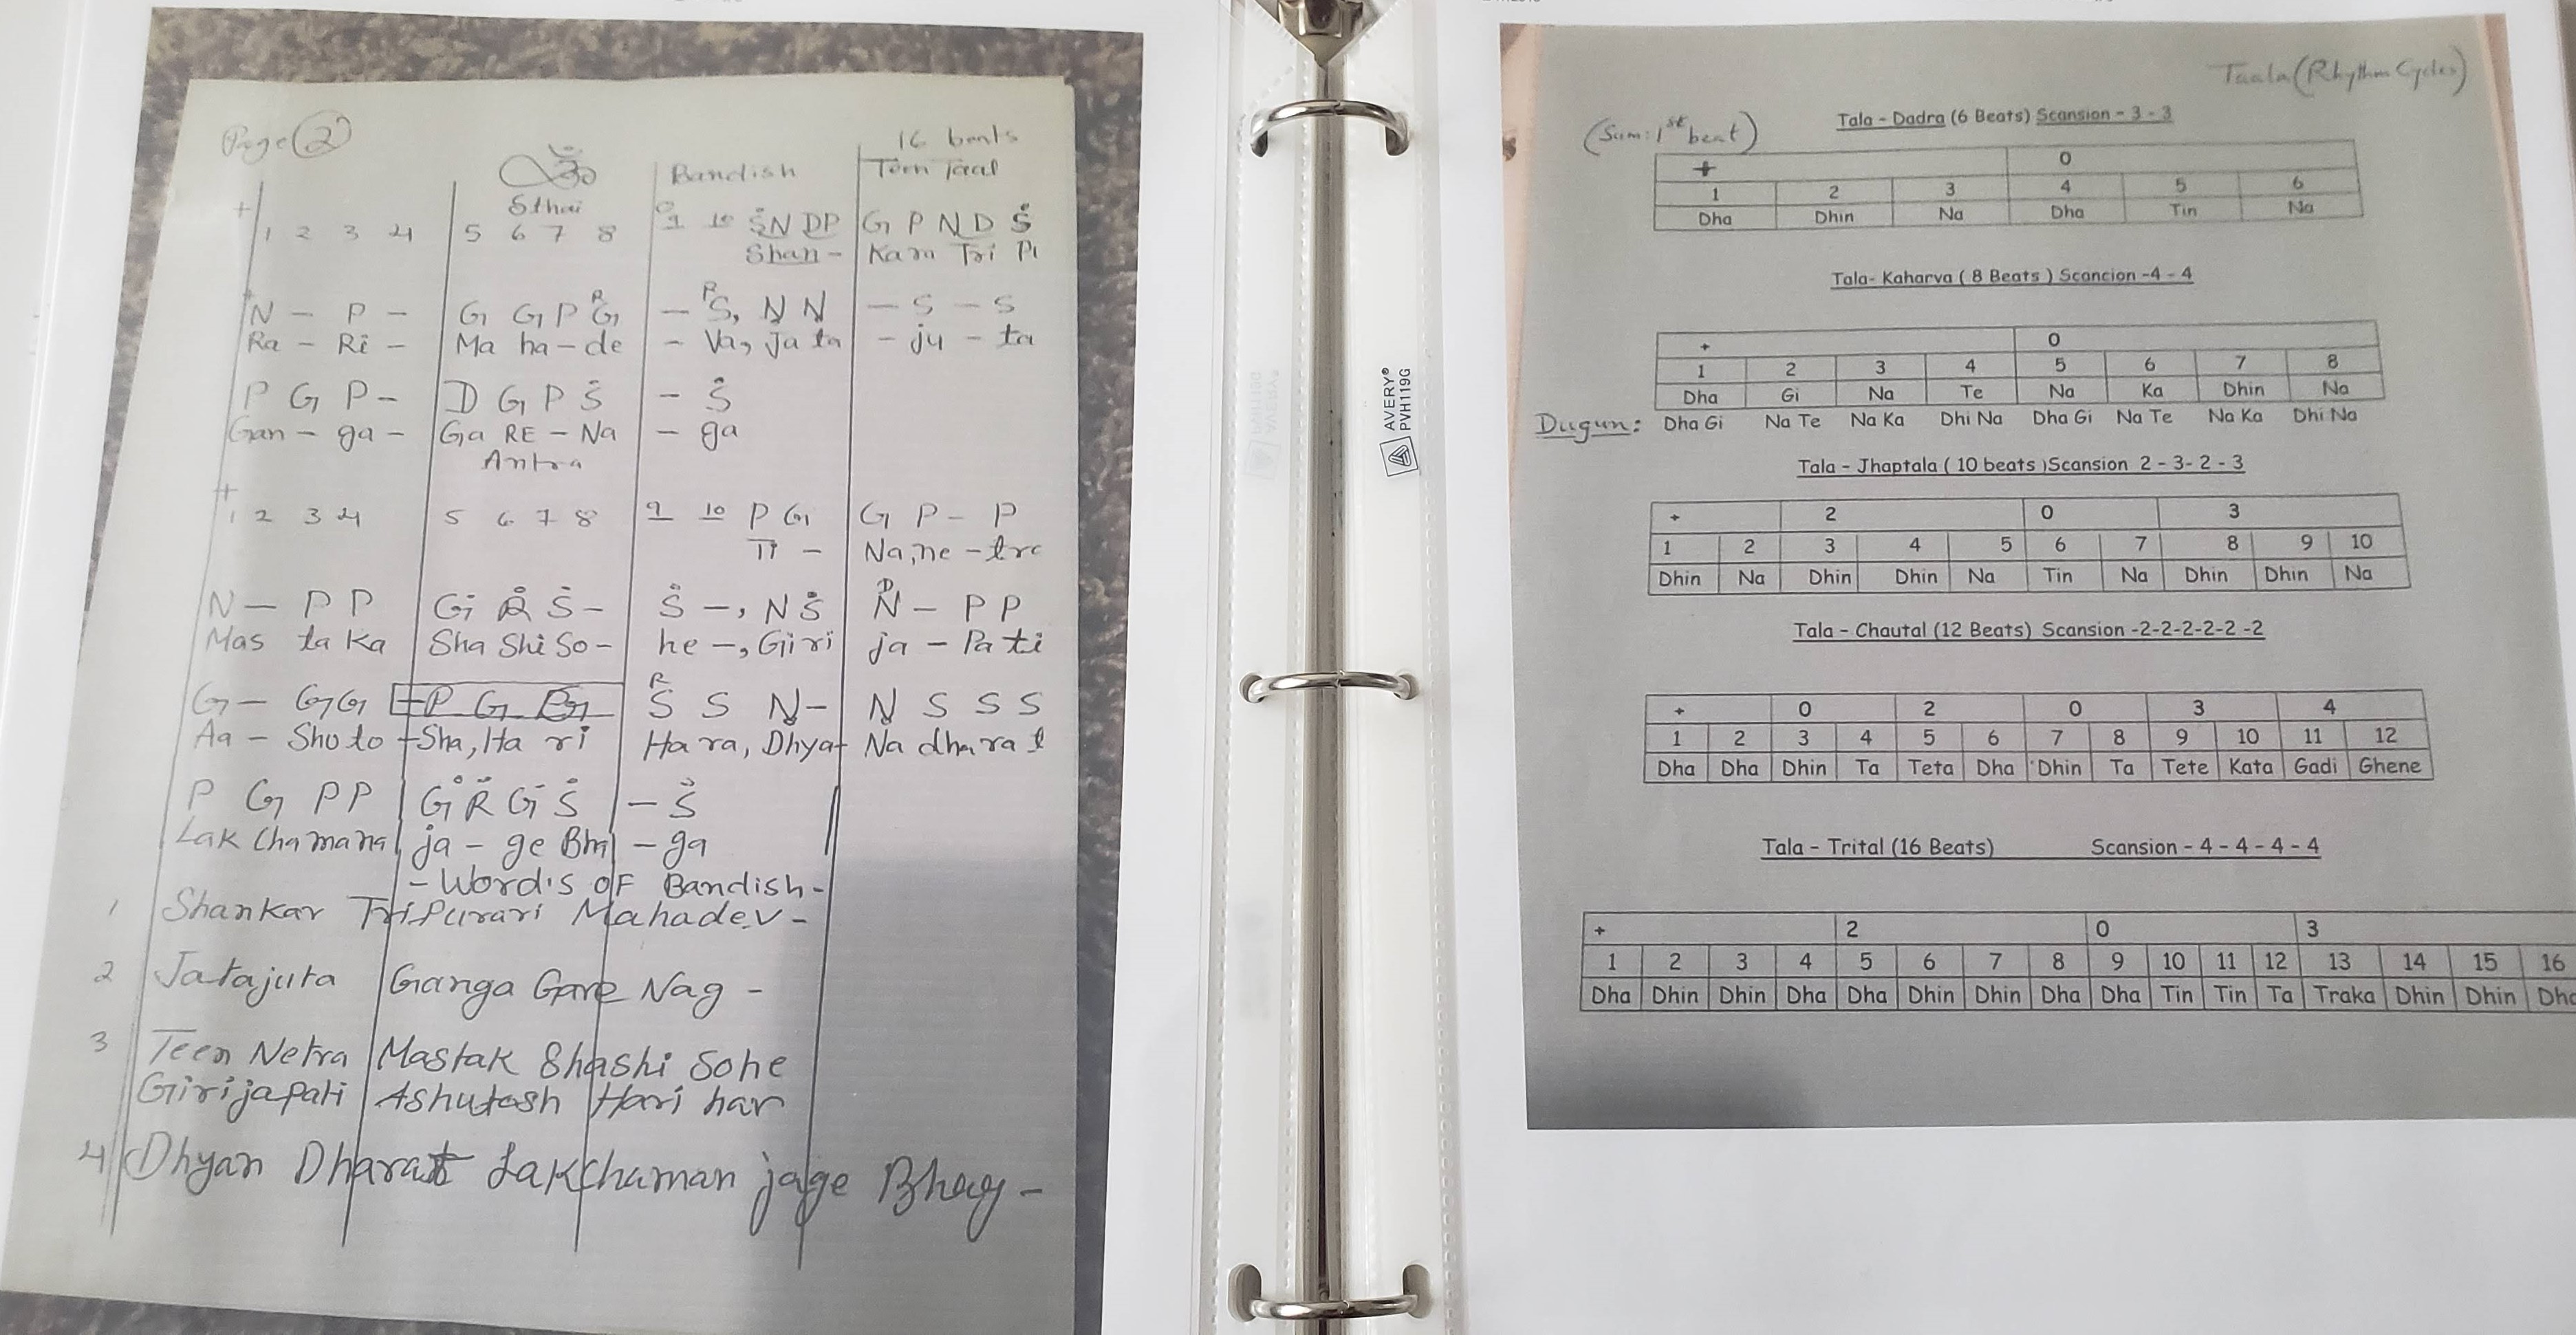 Page 2
ॐ
Bandish
16 beats
Teen Taal
Sthai
+
1 2 3 4 5 6 7 8 9 10 ṠN DP G P N D Ṡ
Shan - Kara Tri Pu
N - P - G G P ᴿG - ᴿS, N N - S - S
Ra - Ri - Ma ha - de - Va, ja ta - ju - ta
P G P - D G P Ṡ - Ṡ
Gan - ga - Ga RE - Na - ga
Antra
+
1 2 3 4 5 6 7 8 9 10 P G G P - P
Ti - Na, ne - tra
N - P P Ġ Ṙ Ṡ - Ṡ -, N Ṡ ᴰN - P P
Mas ta Ka Sha Shi So - he -, Gi ri ja - Pa ti
G - G G - P G RG ᴿS S Ṇ - Ṇ S S S
Aa - Shu to - Sha, Ha ri Ha ra, Dhya - Na dha ra t
P G P P Ġ Ṙ Ġ Ṡ - Ṡ
Lak cha mana ja - ge Bha - ga
- Word's OF Bandish -
1 Shankar Tripurari Mahadev -
2 Jatajuta Ganga Gare Nag -
3 Teen Netra Mastak Shashi Sohe
Girijapati Ashutosh Hari har
4 Dhyan Dharat Lakchaman jage Bhag -
AVERY®
PVH119G
Taala (Rhythm Cycles)
(Sum: 1st beat)
Tala - Dadra (6 Beats) Scansion - 3 - 3
+ 0
1 2 3 4 5 6
Dha Dhin Na Dha Tin Na
Tala- Kaharva ( 8 Beats ) Scancion -4 - 4
+ 0
1 2 3 4 5 6 7 8
Dha Gi Na Te Na Ka Dhin Na
Dugun: Dha Gi Na Te Na Ka Dhi Na Dha Gi Na Te Na Ka Dhi Na
Tala - Jhaptala ( 10 beats )Scansion 2 - 3- 2 - 3
+ 2 0 3
1 2 3 4 5 6 7 8 9 10
Dhin Na Dhin Dhin Na Tin Na Dhin Dhin Na
Tala - Chautal (12 Beats) Scansion -2-2-2-2-2 -2
+ 0 2 0 3 4
1 2 3 4 5 6 7 8 9 10 11 12
Dha Dha Dhin Ta Teta Dha Dhin Ta Tete Kata Gadi Ghene
Tala - Trital (16 Beats) Scansion - 4 - 4 - 4 - 4
+ 2 0 3
1 2 3 4 5 6 7 8 9 10 11 12 13 14 15 16
Dha Dhin Dhin Dha Dha Dhin Dhin Dha Dha Tin Tin Ta Traka Dhin Dhin